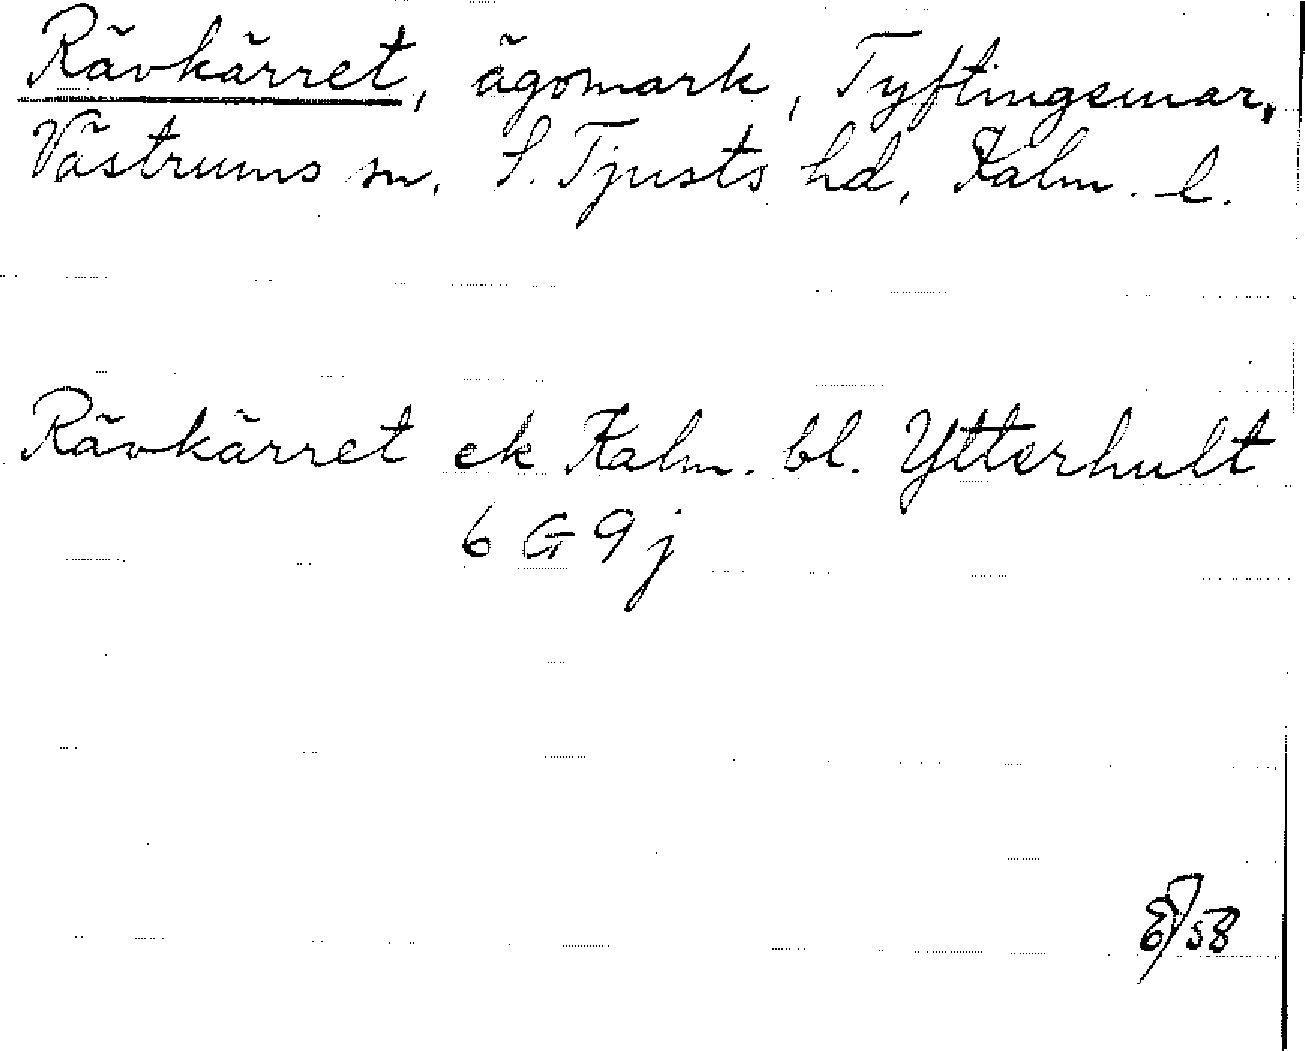 Rävkärret, ägomark, Tyftingsmar,
Västrums sn. S. Tjusts hd, Kalm. l.
Rävkärret ek Kalm. bl. Ytterhult
6 G 9 j
/58